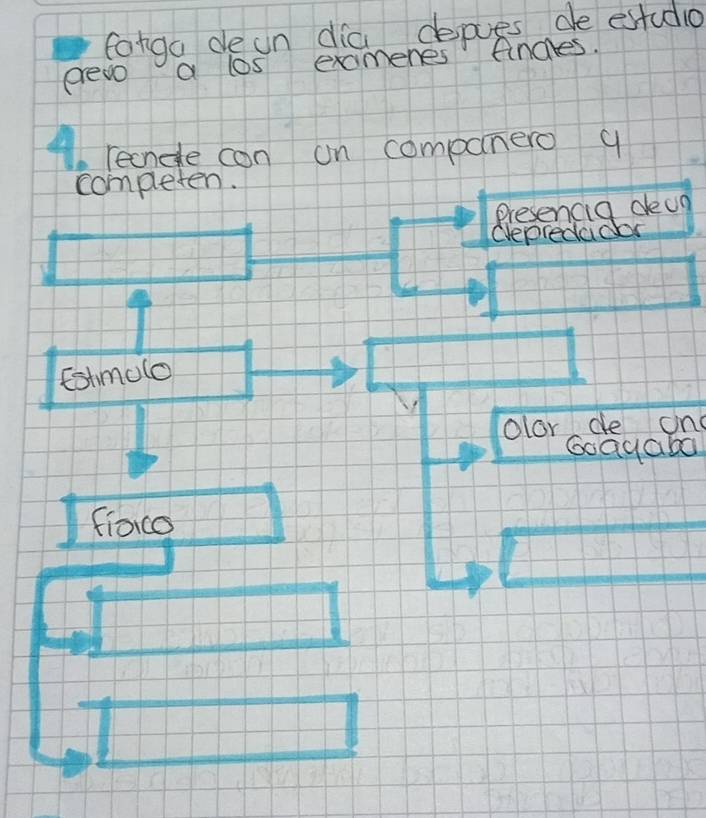 fatiga de un día depues de estudio
previo a los examenes finales.
4. recnete con un compañero y
completen.
presencia de un
depredador
Estimulo
olor de una
Goayaba
Fisico